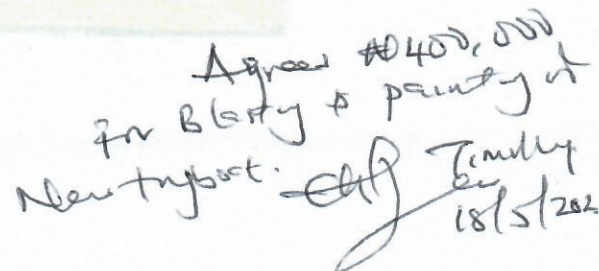 Agreed ₦400,000
for Blasting & painting of
New tugboat. Timothy
18/5/202